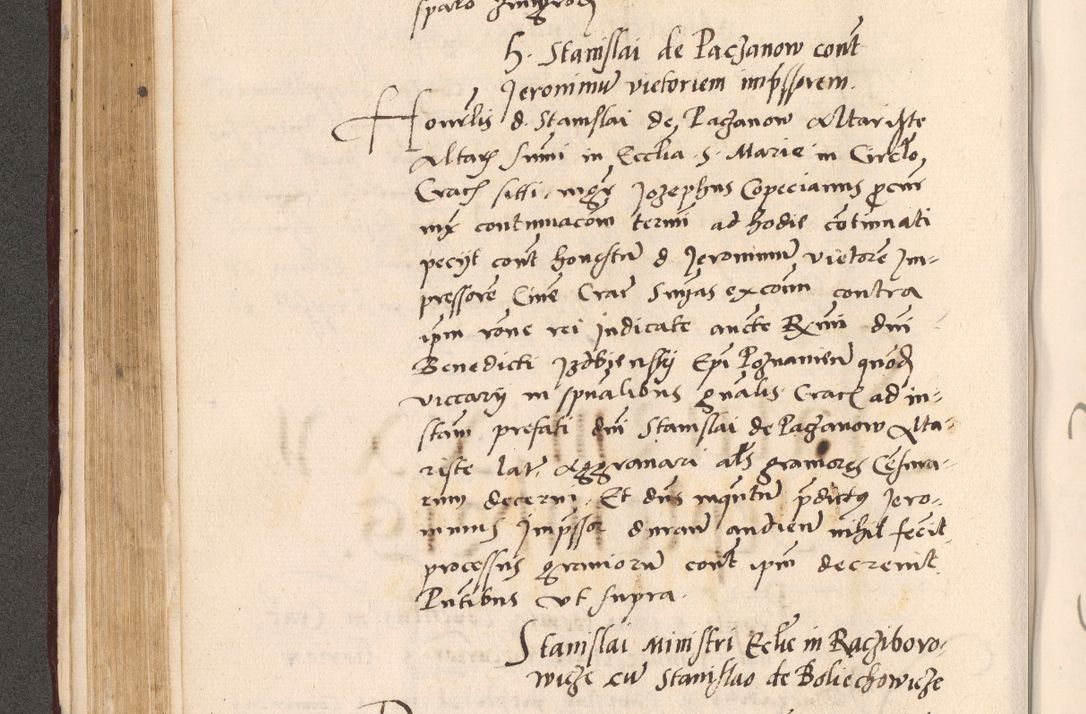 H. Stanislai de Paczanow cont
Jeronimu victoriem impssorem.
Honrlis d. Stanislai de Paczanow Altariste
Altar sumi in Ecclia S. Marie in Circlo,
Crac siti mgr Jozephus Copecianus pcur
contumaciom termi ad hodie cotinuati
peciit cont honestu d. Jeronimu victore Im-
pressore Cive Crac Snias excoim contra
ipm rone rei Judicate aucte Rmi dni
Benedicti Izdbienskij Epi Poznanien quod
viccarij in spualibus gnalis Crac ad in-
stam prefati dni Stanislai de Paczanow Alta-
riste lat. Aggravari als graviores Censura-
rum decerni. Et dns pdictus Jero-
nimus Impssor duran audien nihil fecit
processus graviorū cont ipm decrevit.
Pntibus vt supra.
Stanislai Ministri Eclie in Racziboro-
wicze cu Stanislao de Boliechowicze